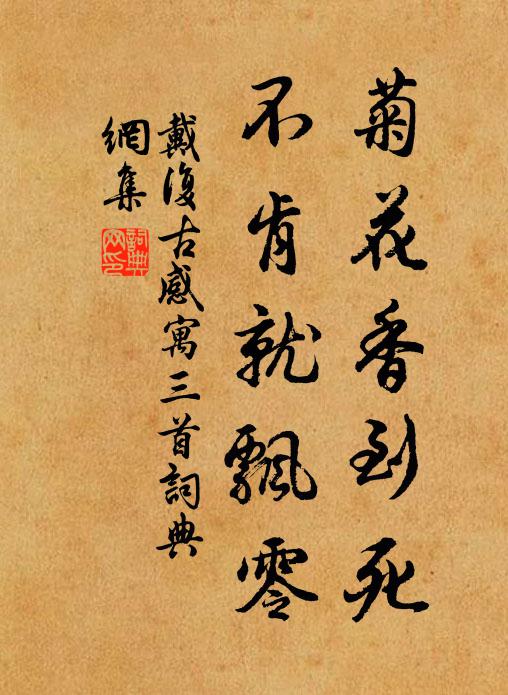 菊花香到死
不肯就飄零
戴復古感寓三首詞典
網集
詞典網印